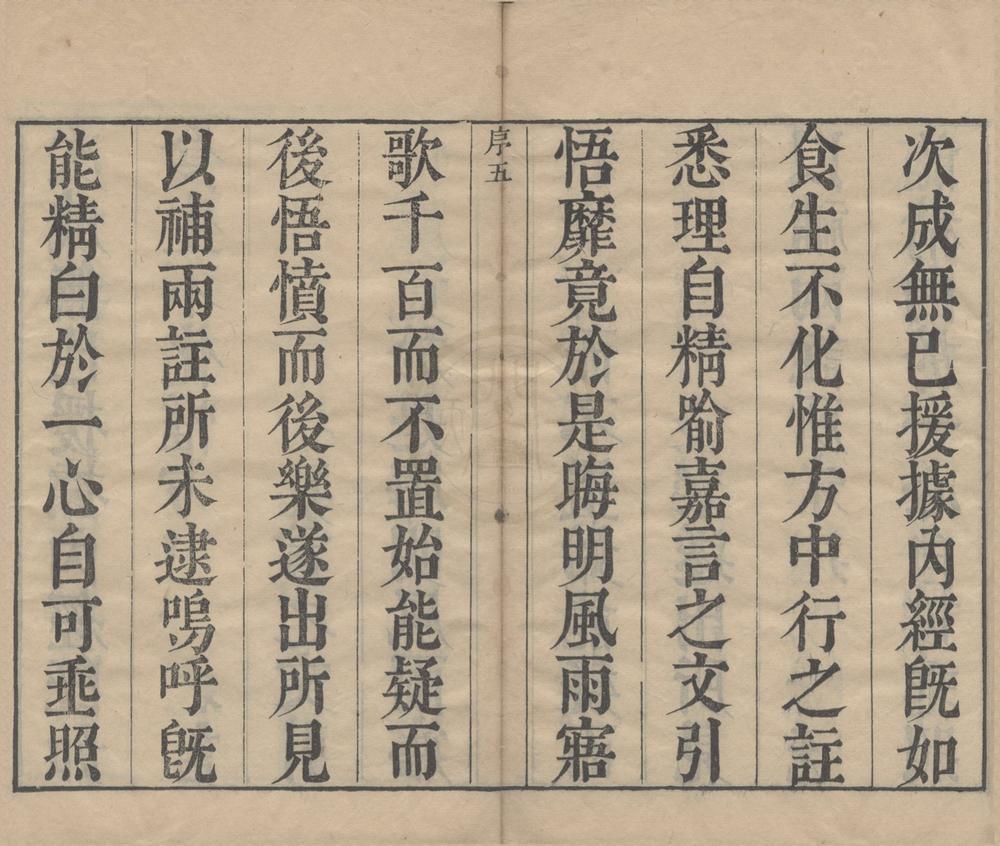 次成無已援據內經旣如
食生不化惟方中行之註
悉理自精喻嘉言之文引
悟靡竟於是晦明風雨寤
序五
歌千百而不置始能疑而
後悟憤而後樂遂出所見
以補兩註所未逮嗚呼旣
能精白於一心自可垂照